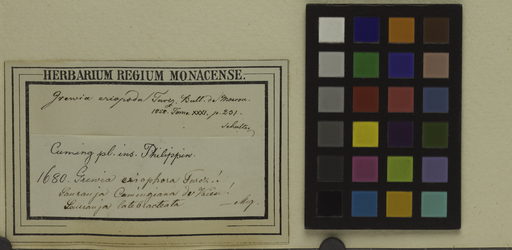 HERBARIUM REGIUM MONACENSE.
Grewia eriopoda Turcz. Bull. de Moscou
1858. Tome XXXI, p. 231.
Schultes
Cuming pl. ins. Philippin.
1680. Grewia eriophora Turcz.!
Sauranja Cumingiana de Vriese!
Sauranja latebracteata